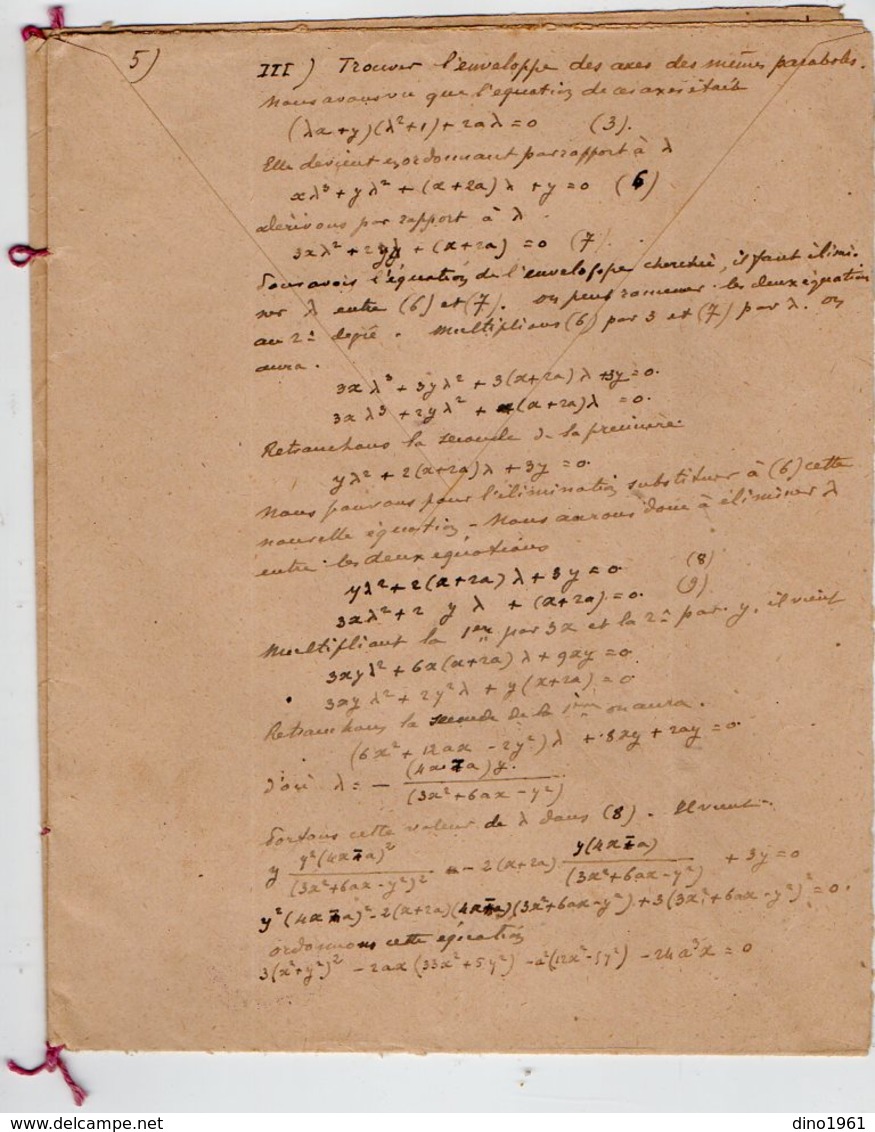 5)
III) Trouver l'enveloppe des axes des mêmes paraboles.
Nous avons vu que l'équation de ces axes était
(λx+y)(λ²+1)+2aλ=0 (3).
Elle devient en ordonnant par rapport à λ
xλ³+yλ²+(x+2a)λ+y=0 (6)
dérivons par rapport à λ.
3xλ²+2yλ+(x+2a)=0 (7).
Pour avoir l'équation de l'enveloppe cherchée, il faut élimi-
ner λ entre (6) et (7). On peut ramener les deux équation
au 2e degré. Multiplions (6) par 3 et (7) par λ. on
aura.
3xλ³+3yλ²+3(x+2a)λ+3y=0.
3xλ³+2yλ²+(x+2a)λ=0.
Retranchons la seconde de la première.
yλ²+2(x+2a)λ+3y=0.
Nous pouvons pour l'élimination substituer à (6) cette
nouvelle équation - Nous aurons donc à éliminer λ
entre les deux équations
yλ²+2(x+2a)λ+3y=0. (8)
3xλ²+2yλ+(x+2a)=0. (9)
Multipliant la 1ère par 3x et la 2e par y, il vient
3xyλ²+6x(x+2a)λ+9xy=0
3xyλ²+2y²λ+y(x+2a)=0
Retranchons la seconde de la 1ère on aura.
(6x²+12ax-2y²)λ+8xy+2ay=0.
d'où λ=-(4x a)y. / (3x²+6ax-y²)
Portons cette valeur de λ dans (8). Il vient.
y y²(4x a)² / (3x²+6ax-y²)² - 2(x+2a) y(4x a) / (3x²+6ax-y²) + 3y=0
y²(4x a)²-2(x+2a)(4x a)(3x²+6ax-y²)+3(3x²+6ax-y²)²=0.
ordonnons cette équation
3(x²+y²)² - 2ax(33x²+5y²) - a²(12x²-5y²) - 24a³x=0
dino1961